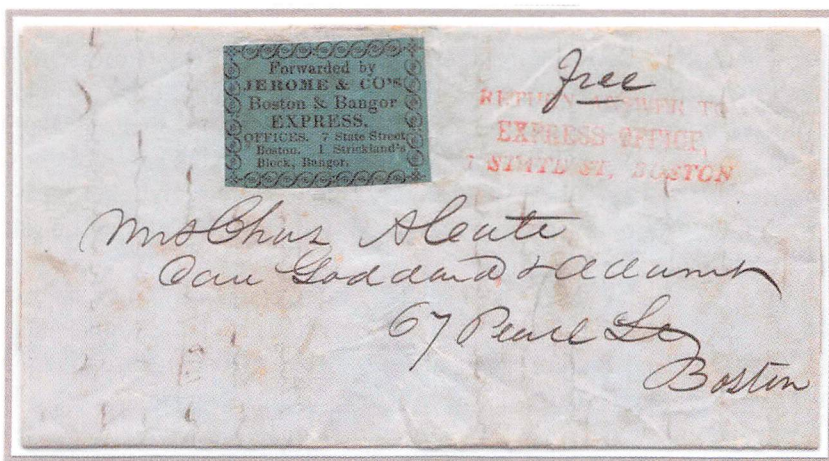 Forwarded by
JEROME & CO'S
Boston & Bangor
EXPRESS.
OFFICES. 7 State Street,
Boston. 1 Strickland's
Block, Bangor.
Free
RETURN ANSWER TO
EXPRESS OFFICE,
7 STATE ST, BOSTON
Mrs Chas
Care Goddard &
67 Pearl St
Boston